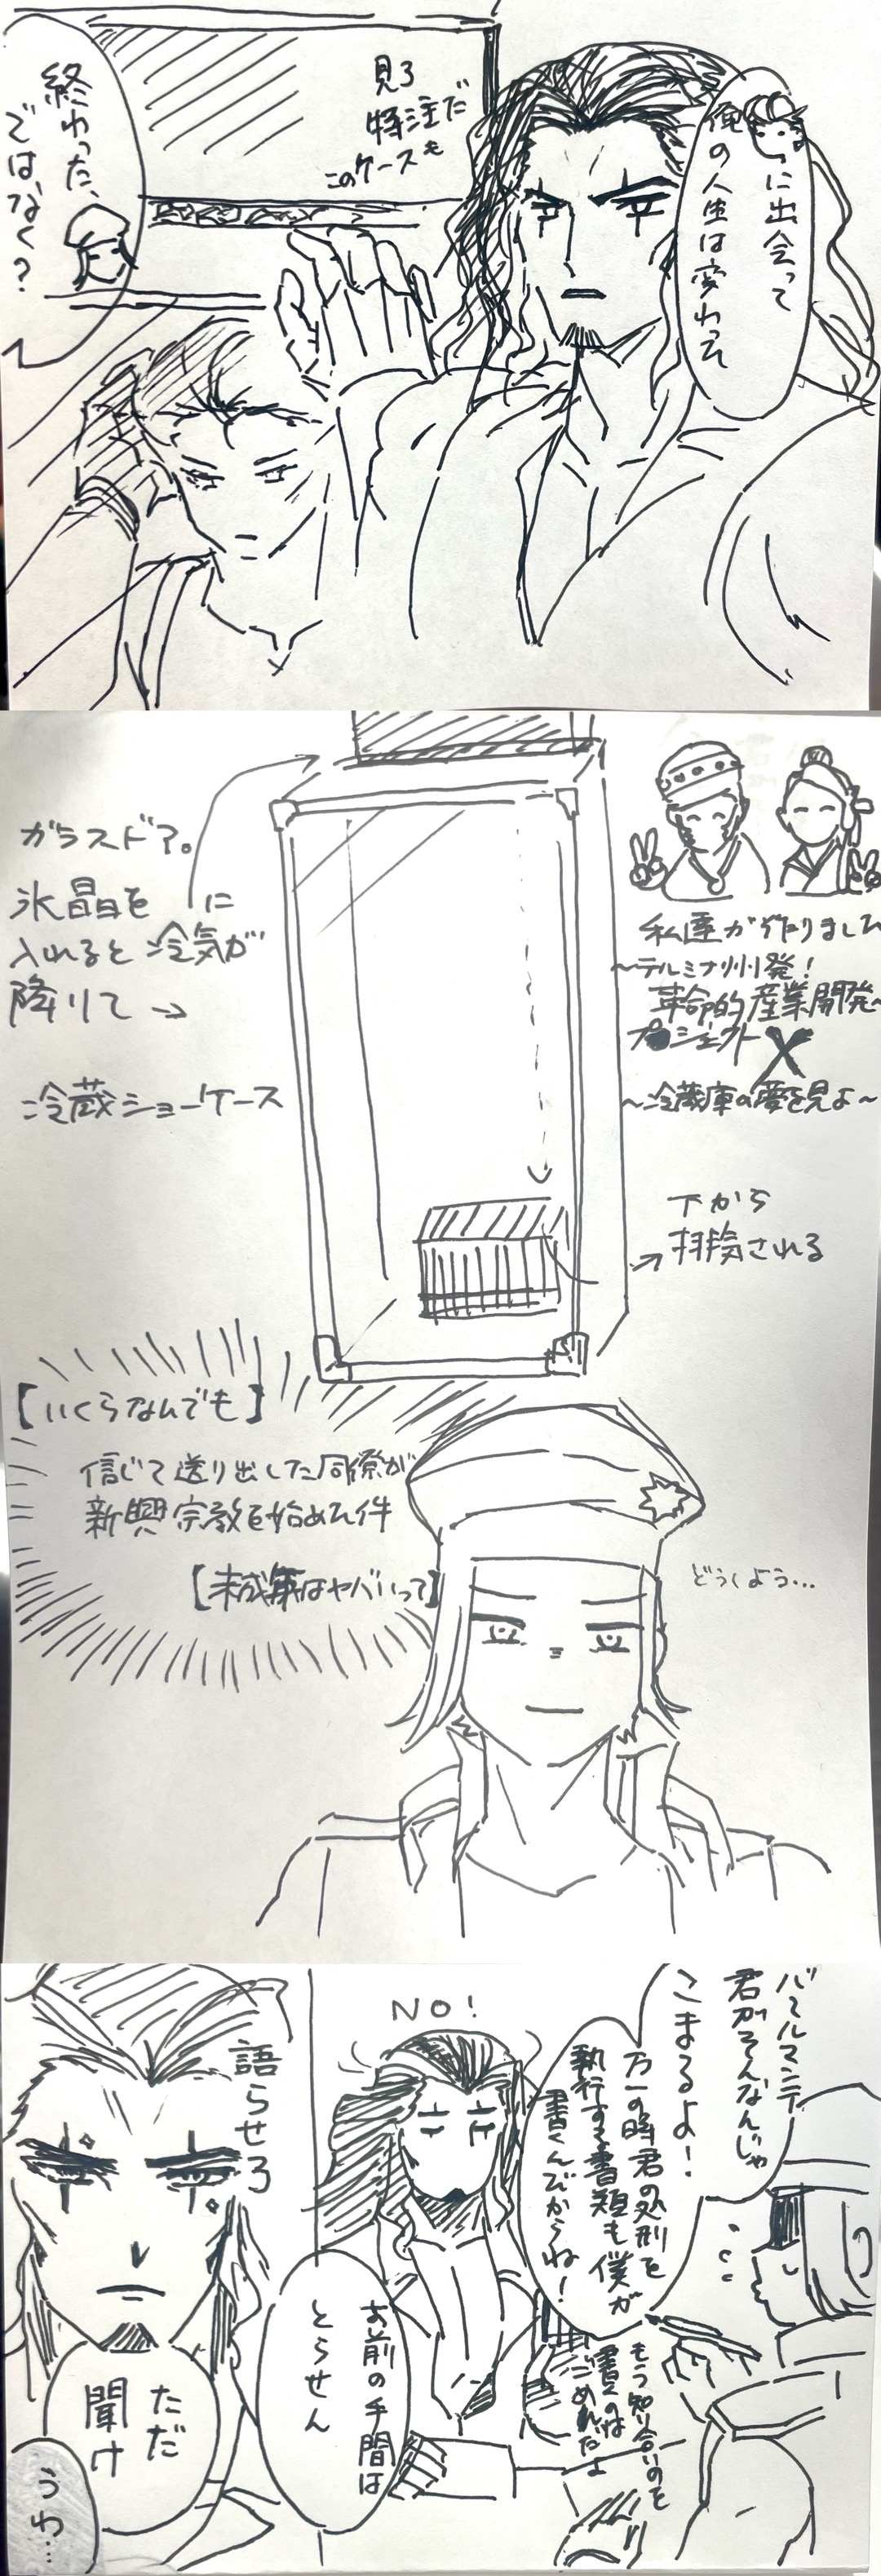 に出会って
俺の人生は変わった
見ろ
特注だ
このケースも
終わった、
ではなく?
私達が作りました
~テルミナ州発!
革命的産業開発~
プロジェクトX
~冷蔵庫の愛を見よ~
ガラスドア。
氷晶を に
入れると冷気が
降りて→
冷蔵ショーケース
下から
排気される
【いくらなんでも】
信じて送り出した同僚が
新興宗教を始めた件
【未成年はヤバいって】
どうしよう…
バルマンテ
君がそんなんじゃ
こまるよ!
万一の時君の処刑を
執行する書類も僕が
書くんだからね!
もう知り合いのを
書くのは
ごめんだよ
NO!
お前の手間は
とらせん
語らせろ
ただ
聞け
うわ…